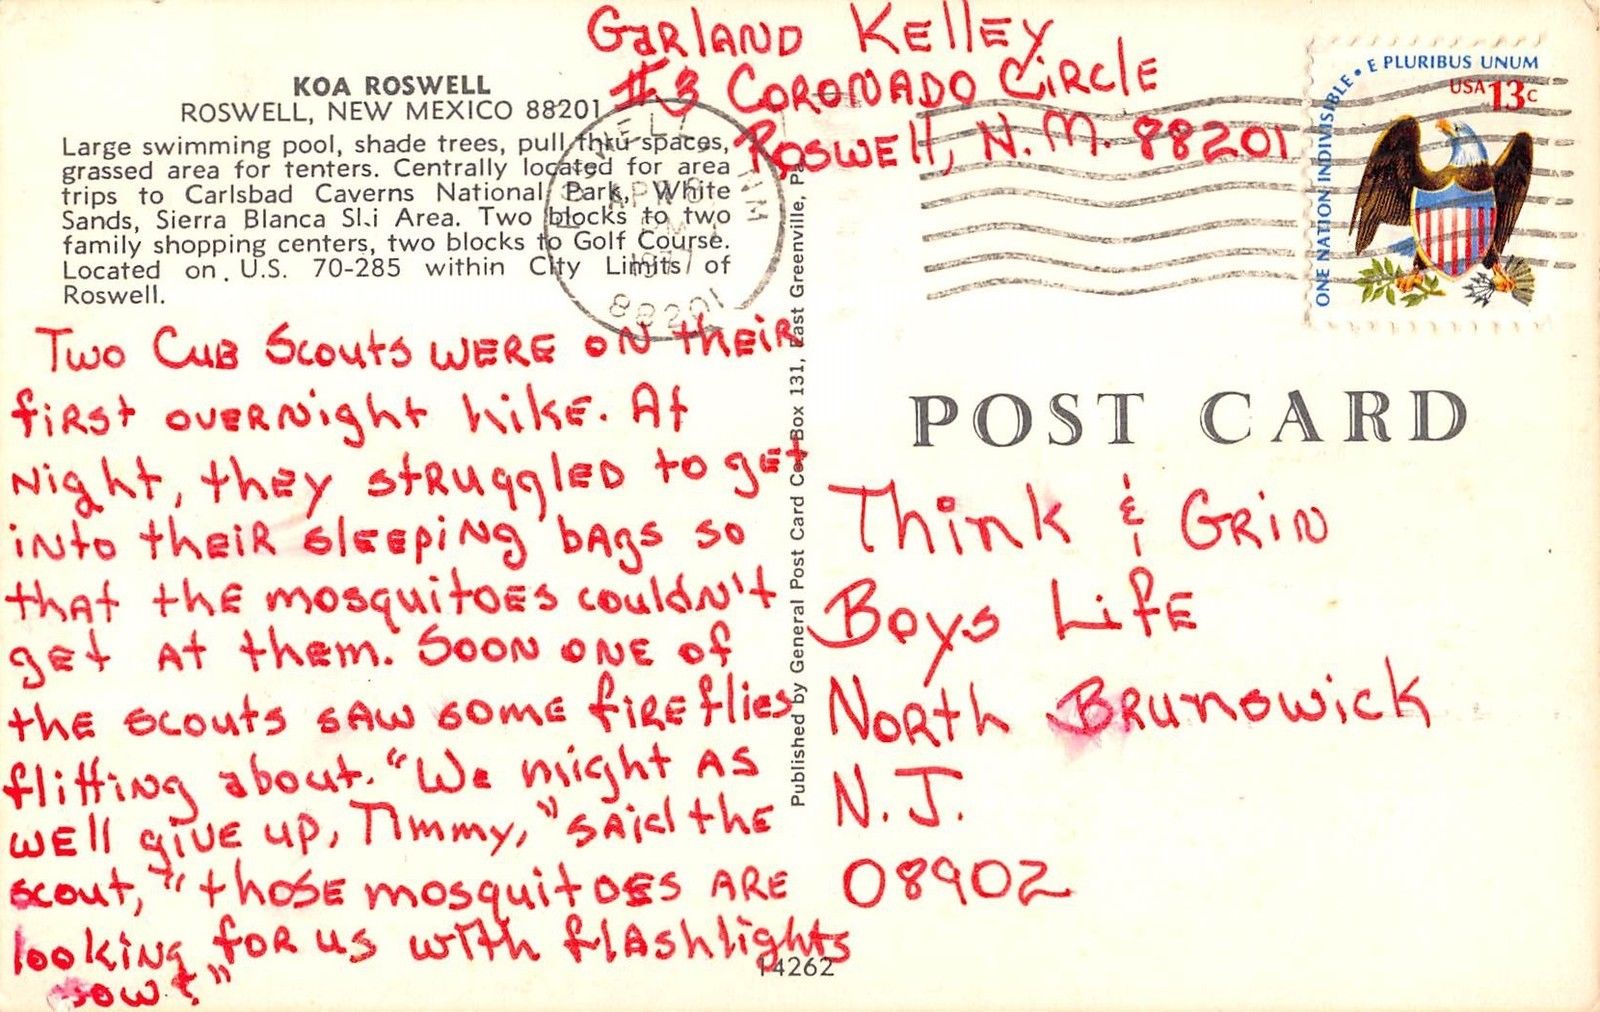 Garland Kelley
#3 Coronado Circle
Roswell, N.M. 88201
KOA ROSWELL
ROSWELL, NEW MEXICO 88201
Large swimming pool, shade trees, pull thru spaces,
grassed area for tenters. Centrally located for area
trips to Carlsbad Caverns National Park, White
Sands, Sierra Blanca Ski Area. Two blocks to two
family shopping centers, two blocks to Golf Course.
Located on U.S. 70-285 within City Limits of
Roswell.
E PLURIBUS UNUM
USA 13c
ONE NATION INDIVISIBLE
NM
APR
88201
Two Cub Scouts were on their
first overnight hike. At
night, they struggled to get
into their sleeping bags so
that the mosquitoes couldn't
get at them. Soon one of
the scouts saw some fireflies
flitting about. "We might as
well give up, Timmy," said the
scout, "those mosquitoes are
looking for us with flashlights
Published by General Post Card Co. Box 131, East Greenville, Pa.
POST CARD
Think & Grin
Boys Life
North Brunswick
N.J.
08902
14262